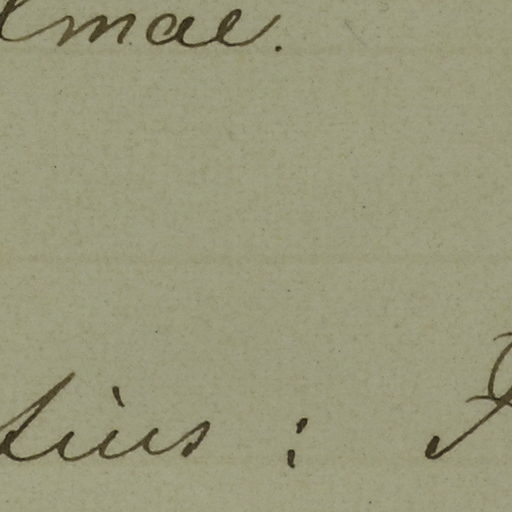 lmae.
tius :